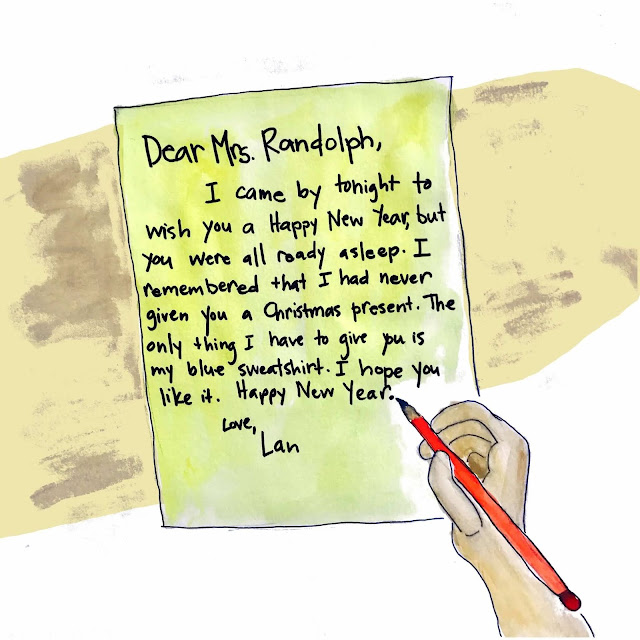 Dear Mrs. Randolph,
I came by tonight to
wish you a Happy New Year, but
you were all ready asleep. I
remembered that I had never
given you a Christmas present. The
only thing I have to give you is
my blue sweatshirt. I hope you
like it. Happy New Year.
Love,
Lan